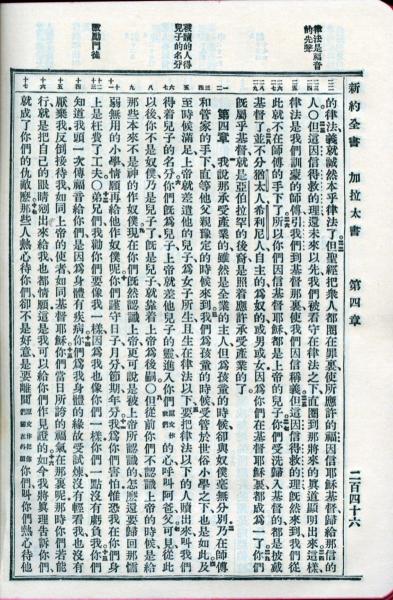 律法是福音的先聲
被贖的人得兒子的名分
激勵門徒
的律法、義就誠然本乎律法了但聖經把衆人都圈在罪裏、使所應許的福因信耶穌基督歸給那信的
人○但這因信得救的理還未來以先、我們被看守在律法之下、直圈到那將來的真道顯明出來這樣、
律法是我們訓蒙的師傅、引我們到基督那裏、使我們因信稱義但這因信得救的理、既然來到、我們從
此就不在師傅的手下了所以你們因信基督耶穌、都是上帝的兒子你們受洗歸入基督的、都是披戴
基督了並不分猶太人、希利尼人、自主的、爲奴的、或男或女、因爲你們在基督耶穌裏都成爲一了你們
既屬乎基督、就是亞伯拉罕的後裔、是照着應許承受產業的了
第四章 我說那承受產業的、雖然是全業的主人、但爲孩童的時候、卻與奴僕毫無分別乃在師傅
和管家的手下、直等他父親豫定的時候來到我們爲孩童的時候、受管於世俗小學之下、也是如此及
至時候滿足、上帝就差遣他的兒子、爲女子所生、且生在律法以下要把律法以下的人贖出來、叫我們
得着兒子的名分你們既爲兒子、上帝就差他兒子的靈、進入你們原文作我們的心、呼叫阿爸、父可見從此
以後、你不是奴僕、乃是兒子了既是兒子、就靠着上帝爲後嗣○但從前你們不認識上帝的時候、是給
那些本來不是神的作奴僕現在你們既然認識上帝、更可說是被上帝所認識的、怎麼還要歸回那懦
弱無用的小學、情願再給他作奴僕呢你們謹守日子、月分、節期、年分我爲你們害怕、惟恐我在你們身
上是枉費了工夫○弟兄們、我勸你們要像我一樣、因爲我也像你們一樣、你們一點沒有虧負我你們
知道我頭一次傳福音給你們、是因爲身體有疾病你們爲我身體的緣故受試煉、沒有輕看我、也沒有
厭棄我反倒接待我、如同上帝的使者、如同基督耶穌你們當日所誇的福氣在那裏呢、那時你們若能
行、就是把自己的眼睛剜出來給我、也都情願、這是我可以給你們作見證的如今我將真理告訴你們、
就成了你們的仇敵麼那些人熱心待你們、卻不是好意、是要離間原文作把你們關在外面你們、叫你們熱心待他
新約全書 加拉太書 第四章 二百四十六